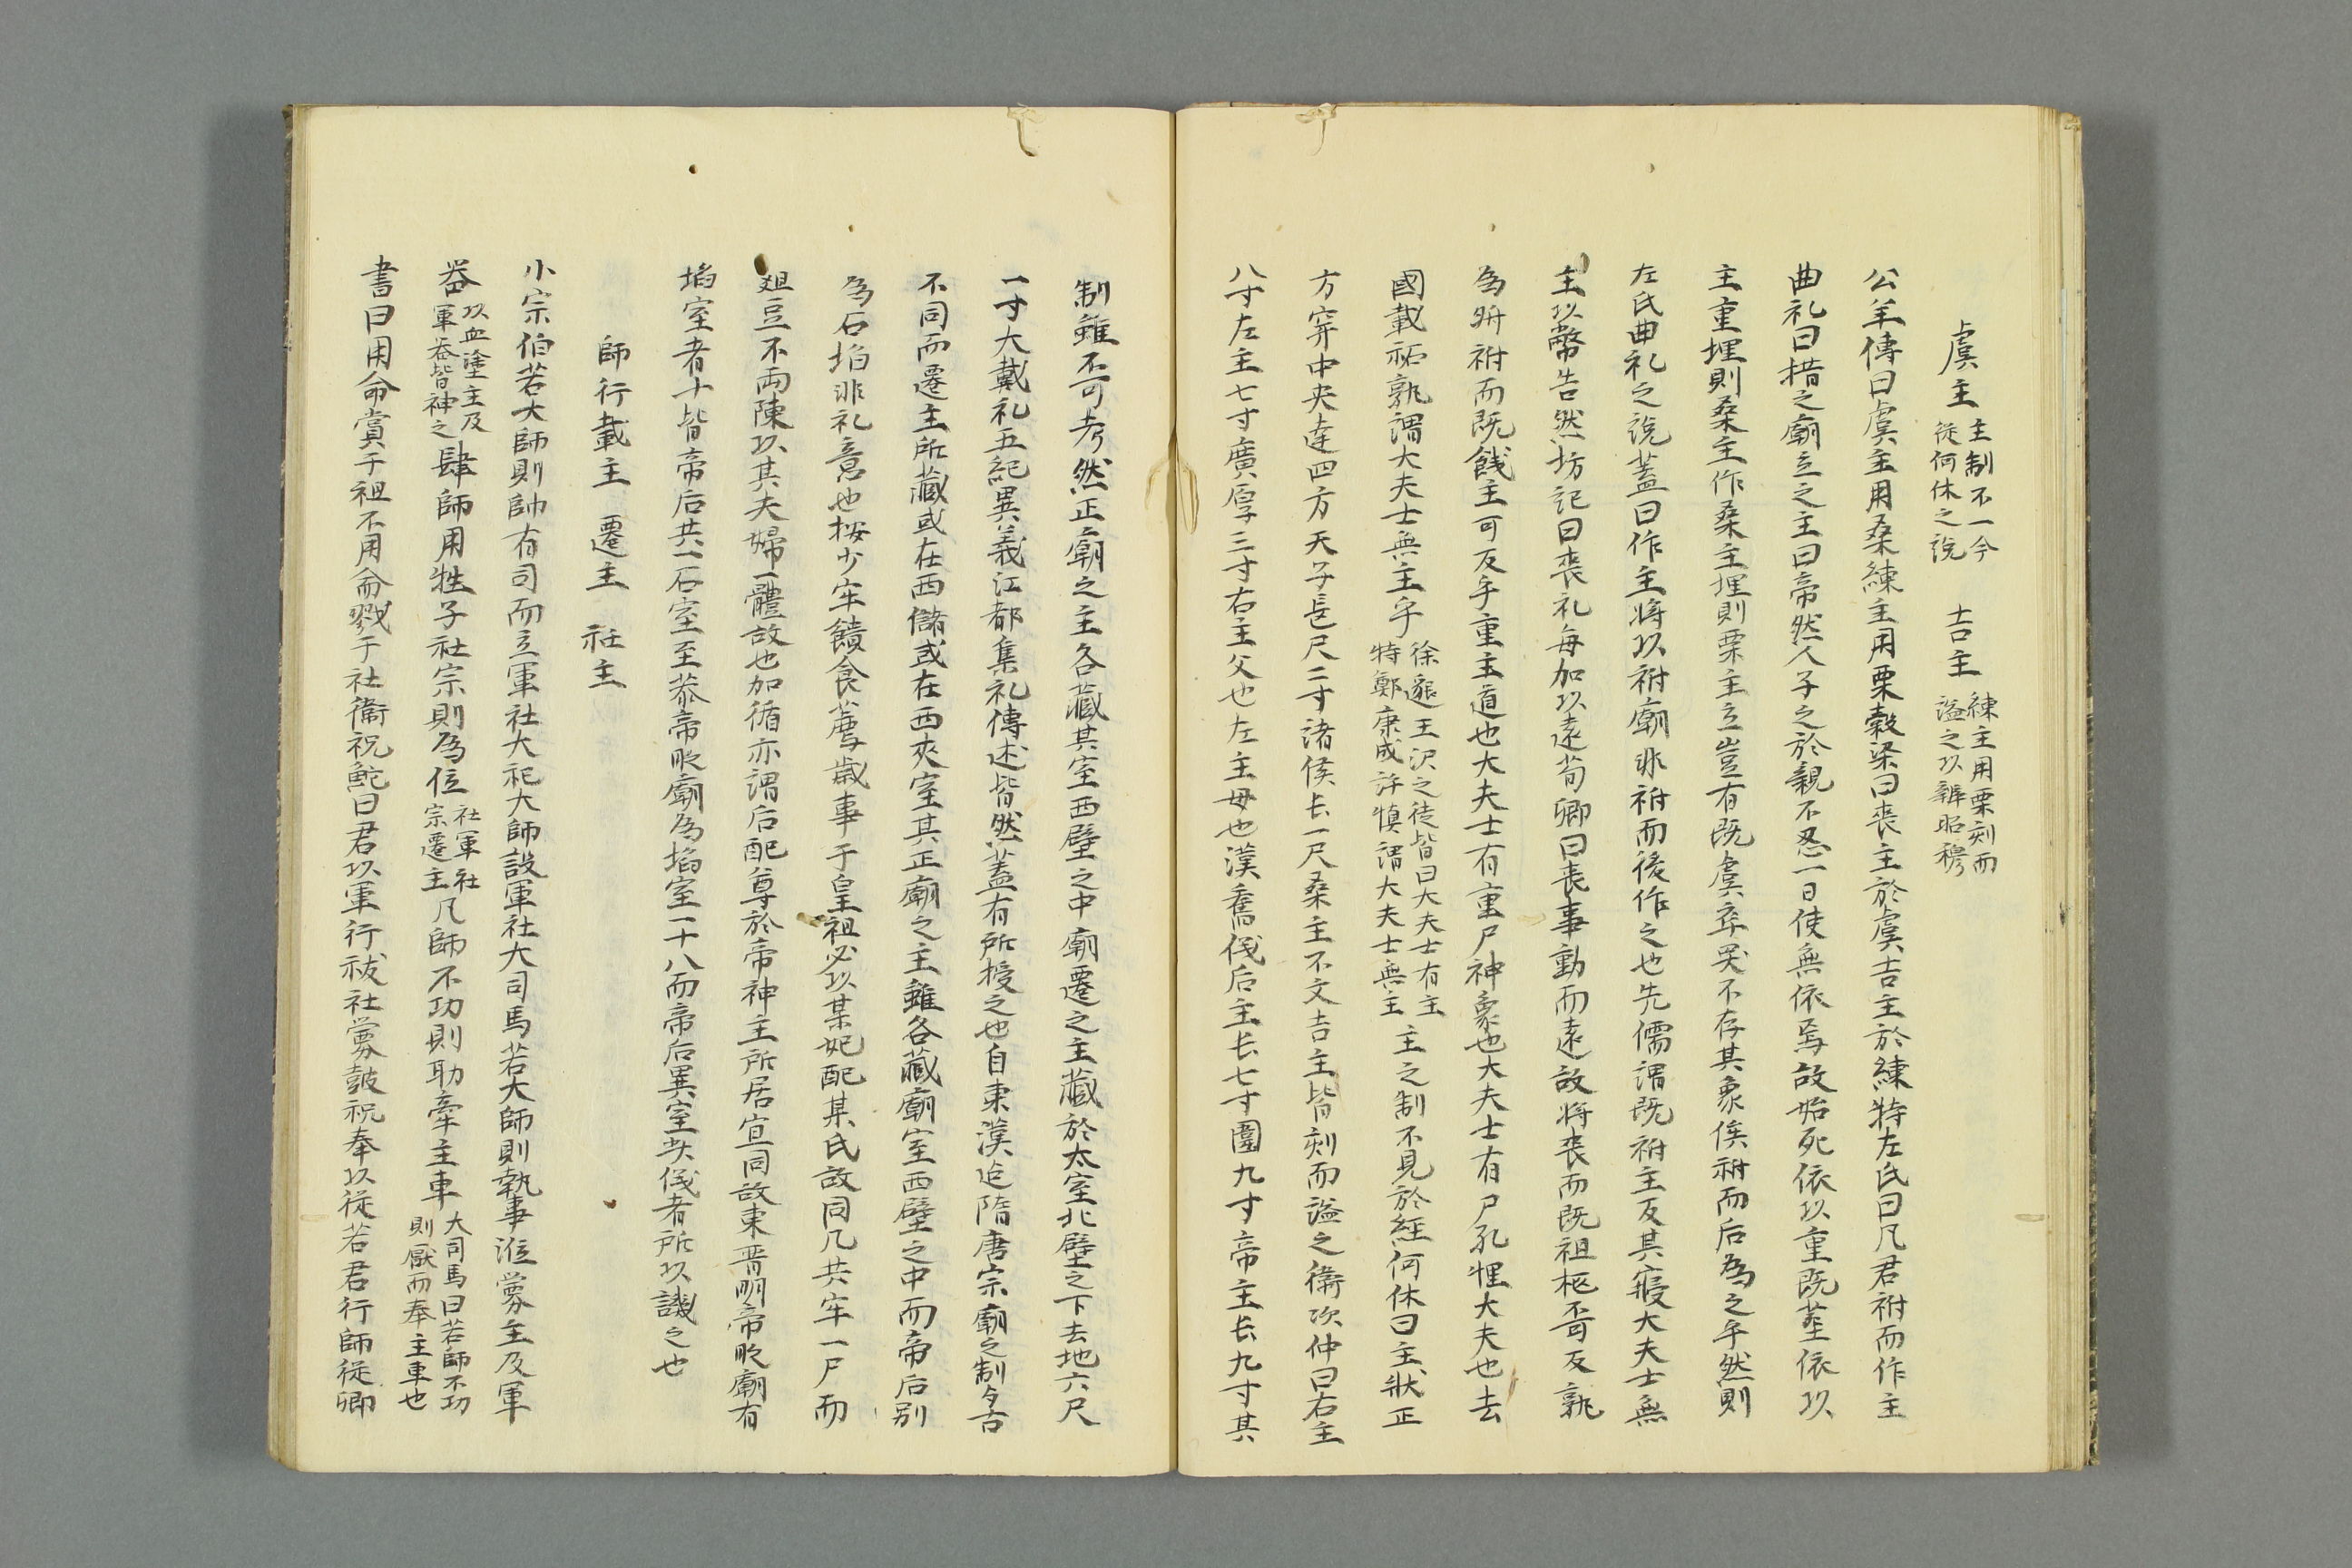 虞主 主制不一今從何休之說 吉主 練主用栗刻而謚之以辨昭穆
公羊傳曰虞主用桑練主用栗穀梁曰喪主於虞吉主於練特左氏曰凡君祔而作主
曲礼曰措之廟立之主曰帝然人子之於親不忍一日使無依焉故始死依以重既葬依以
主重埋則桑主作桑主埋則栗主立豈有既虞卒哭不存其象俟祔而后為之乎然則
左氏曲礼之說蓋曰作主将以祔廟非祔而後作之也先儒謂既祔主反其寢大夫士無
主以幣告然坊記曰喪礼每加以遠荀卿曰喪事動而遠故将喪而既祖柩不可反孰
為将祔而既餞主可反乎重主道也大夫士有重尸神象也大夫士有尸孔悝大夫也去
國載祏孰謂大夫士無主乎 徐邈王沢之徒皆曰大夫士有主特鄭康成許慎謂大夫士無主 主之制不見於經何休曰主狀正
方穿中央達四方天子長尺二寸諸侯長一尺桑主不文吉主皆刻而謚之衛次仲曰右主
八寸左主七寸廣厚三寸右主父也左主母也漢舊儀后主長七寸圍九寸帝主長九寸其
制雖不可考然正廟之主各藏其室西壁之中廟遷之主藏於太室北壁之下去地六尺
一寸大戴礼五紀異義江都集礼傳述皆然蓋有所授之也自東漢迄隋唐宗廟之制与古
不同而遷主所藏或在西儲或在西夾室其正廟之主雖各藏廟室西壁之中而帝后别
為石埳非礼意也按少牢饋食薦歲事于皇祖必以某妃配某氏故同几共牢一尸而
爼豆不兩陳以其夫婦一體故也加循亦謂后配尊於帝神主所居宜同故東晋明帝昄廟有
埳室者十皆帝后共一石室至恭帝昄廟為埳室一十八而帝后異室矣儀者所以譏之也
師行載主 遷主 社主
小宗伯若大師則帥有司而立軍社大祀大師設軍社大司馬若大師則執事涖釁主及軍
器 以血塗主及軍器皆神之 肆師用牲于社宗則為位 社軍社宗遷主 凡師不功則助牽主車 大司馬曰若師不功則厭而奉主車也
書曰用命賞于祖不用命戮于社衛祝鮀曰君以軍行祓社釁鼓祝奉以從若君行師從卿